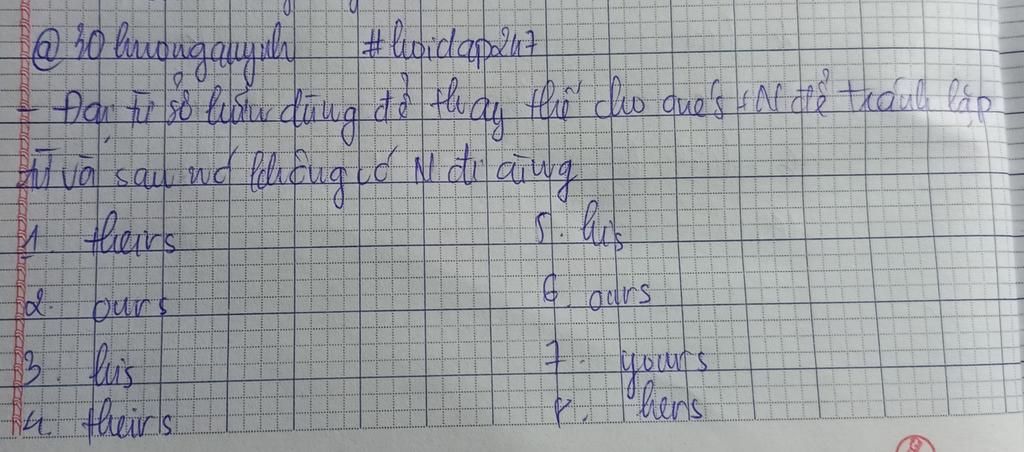 @ 30 huongquynh #hoidap247
- Đại từ sở hữu dùng để thay thế cho ques + N để tránh lặp
từ và sau nó không có N đi cùng
1. theirs 5. his
2. ours 6. ours
3. his 7. yours
4. theirs 8. hers